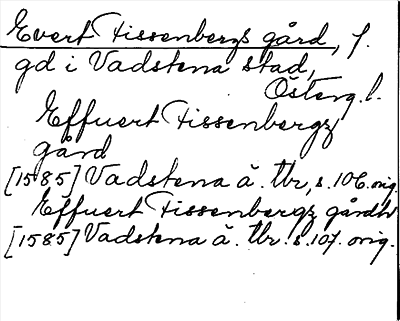 Evert Fissenbergs gård, f.
gd i Vadstena stad,
Österg.l.
Effuert Fissenbergz
gård
[1585] Vadstena ä. tbr, s. 106. orig.
Effuert Fissenbergz gårdh
[1585] Vadstena ä. tbr. s. 107. orig.